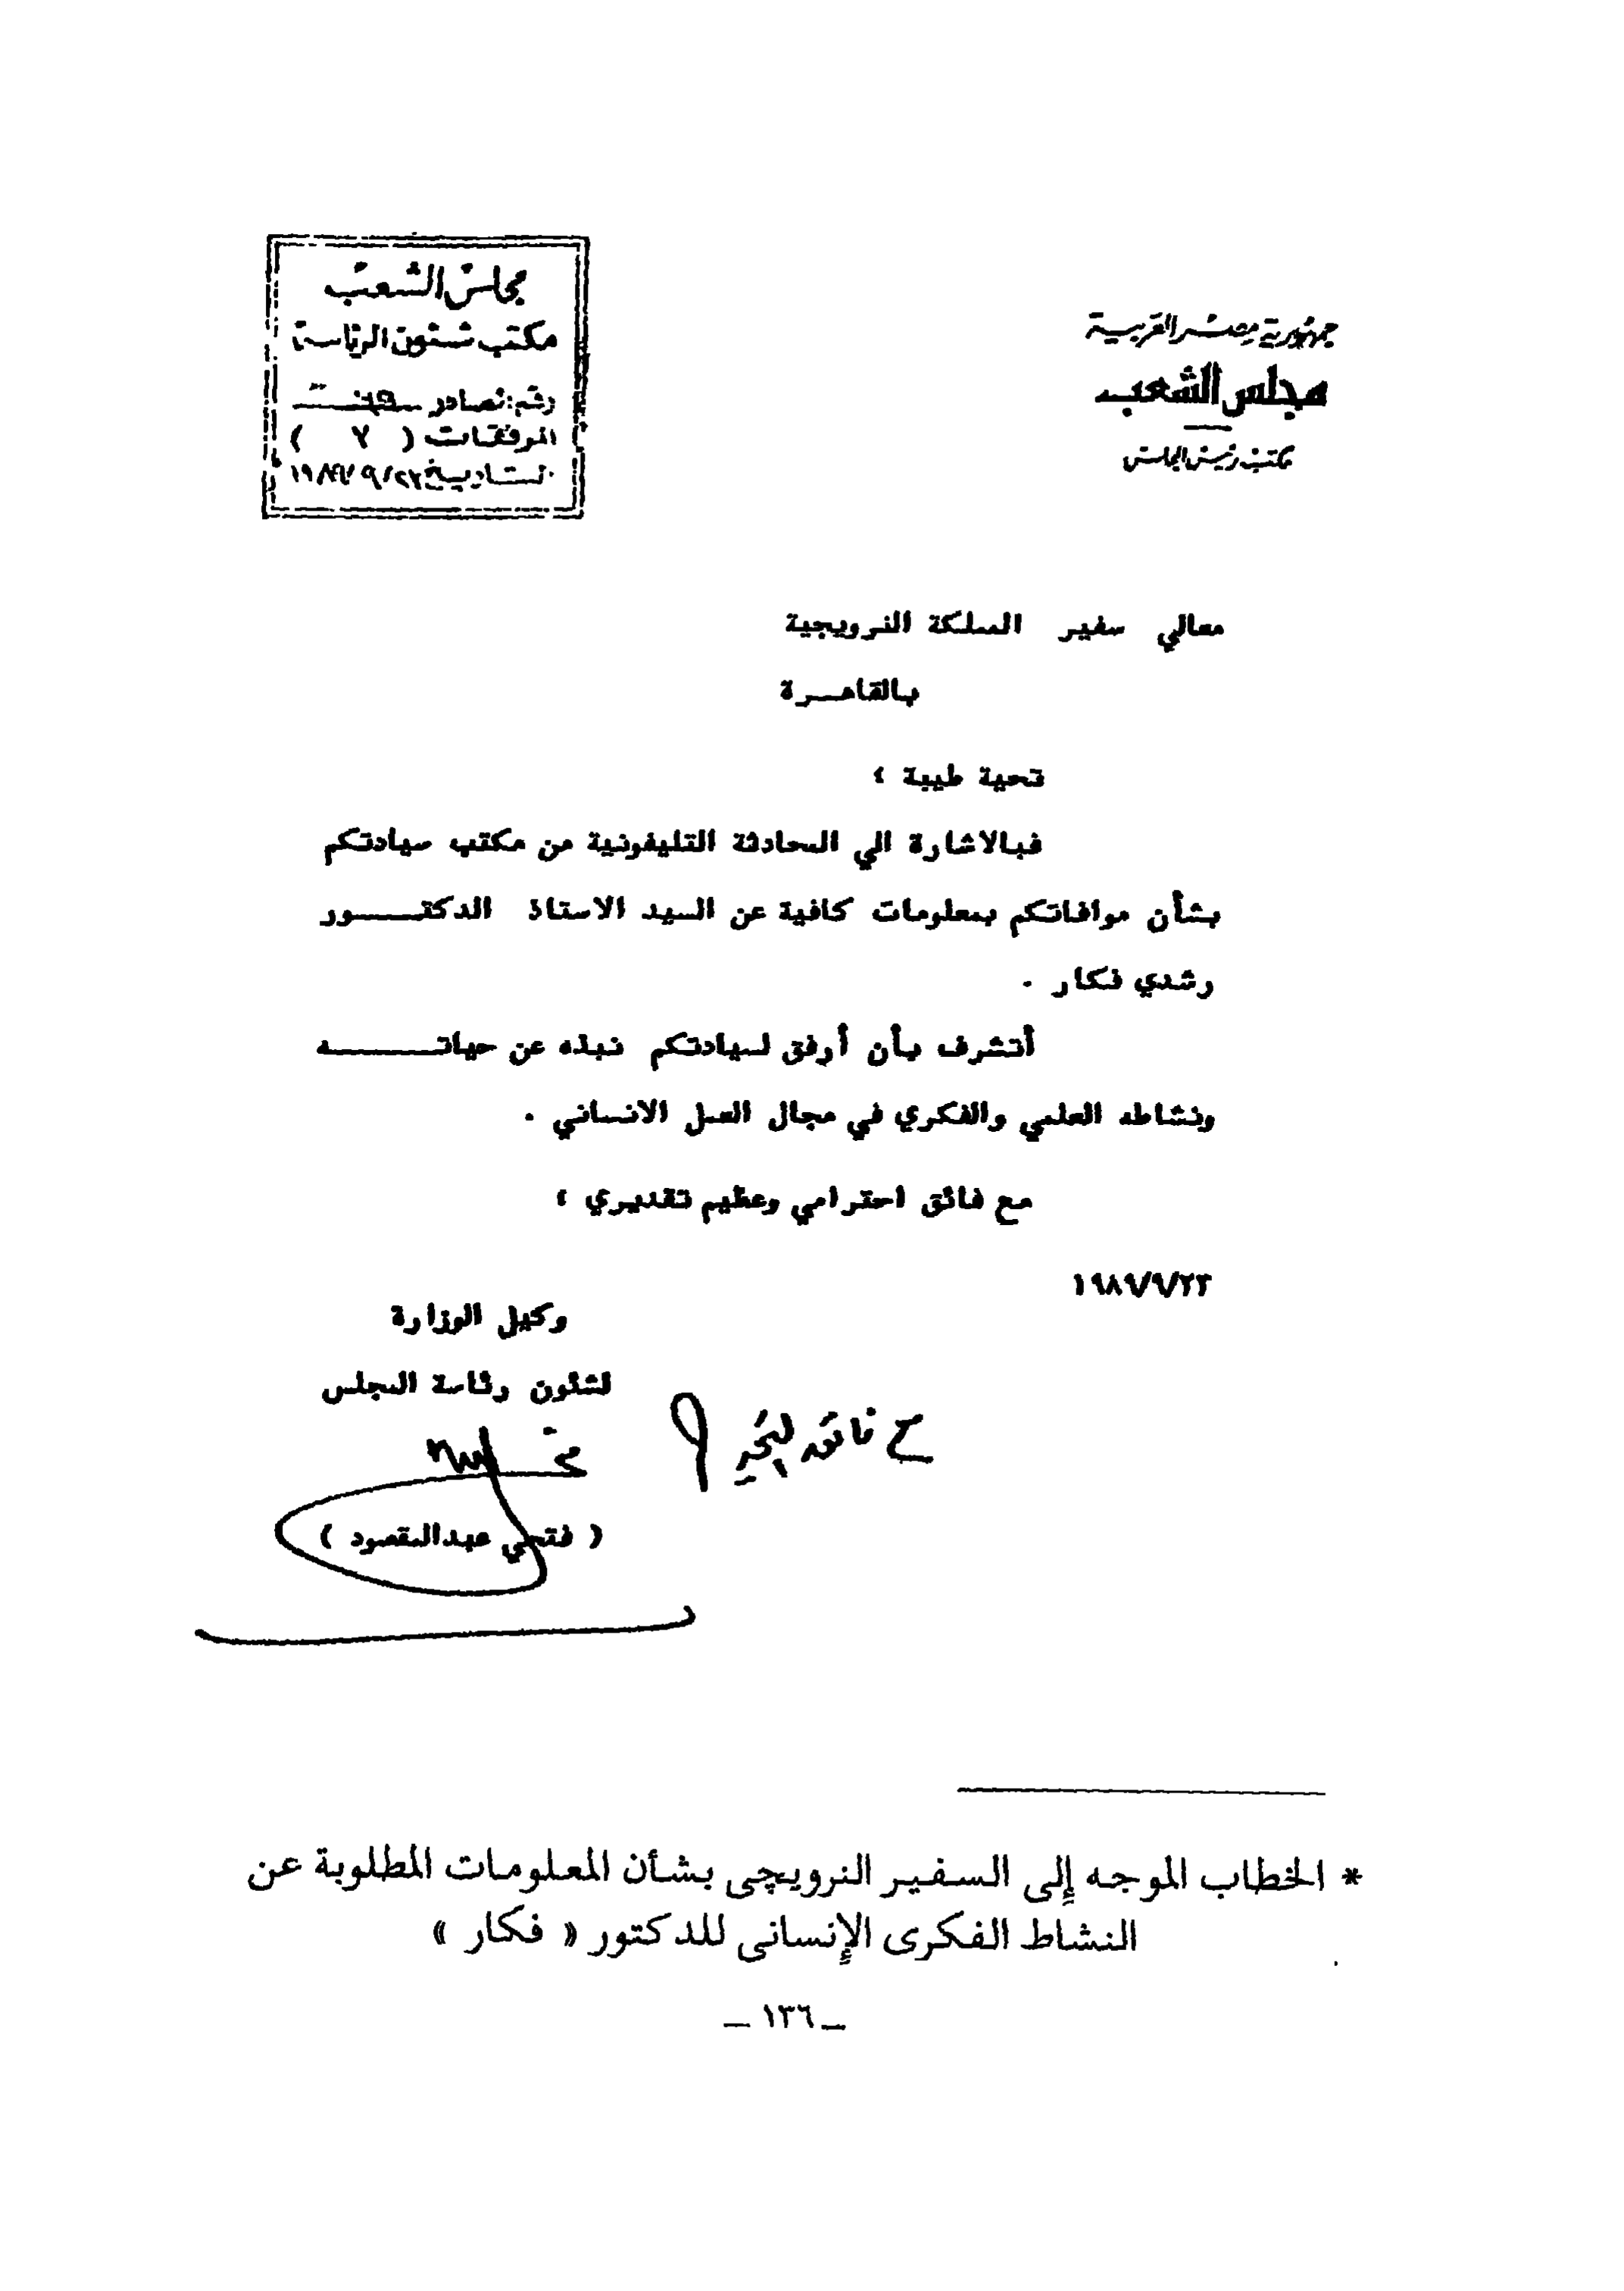 جمهورية مصر العربية
مجلس الشعب
مكتب رئيس المجلس
مجلس الشعب
مكتب شئون الرئاسة
رقم: صادر
المرفقات ( ٧ )
التاريخ ٢٣/ ٩/ ١٩٨٩
معالي سفير المملكة النرويجية
بالقاهـــرة
تحية طيبة ،
فبالاشارة الي المحادثة التليفونية من مكتب سيادتكم
بشأن موافاتكم بمعلومات كافية عن السيد الاستاذ الدكتـــــور
رشدي فكار .
أتشرف بأن أرفق لسيادتكم نبذه عن حياتـــــــه
ونشاطه العلمي والفكري في مجال العمل الانساني .
مع فائق احترامي وعظيم تقديري ،
١٩٨٩/٩/٢٣
وكيل الوزارة
لشئون رئاسة المجلس
( فتحي عبدالمقصود )
* الخطاب الموجه إلى السفير النرويچى بشأن المعلومات المطلوبة عن
النشاط الفكرى الإنسانى للدكتور « فكار »
ــ ١٣٦ ــ